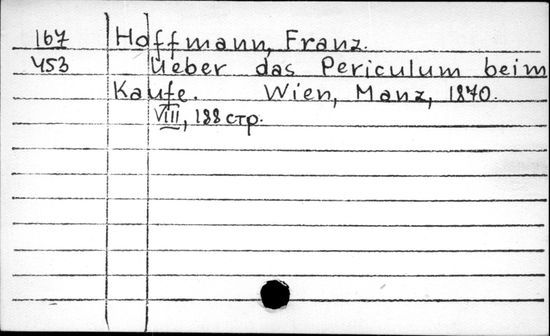 167 Hoffmann, Franz.
453 Ueber das Periculum beim
Kaufe. Wien, Manz, 1870.
VIII, 188 стр.